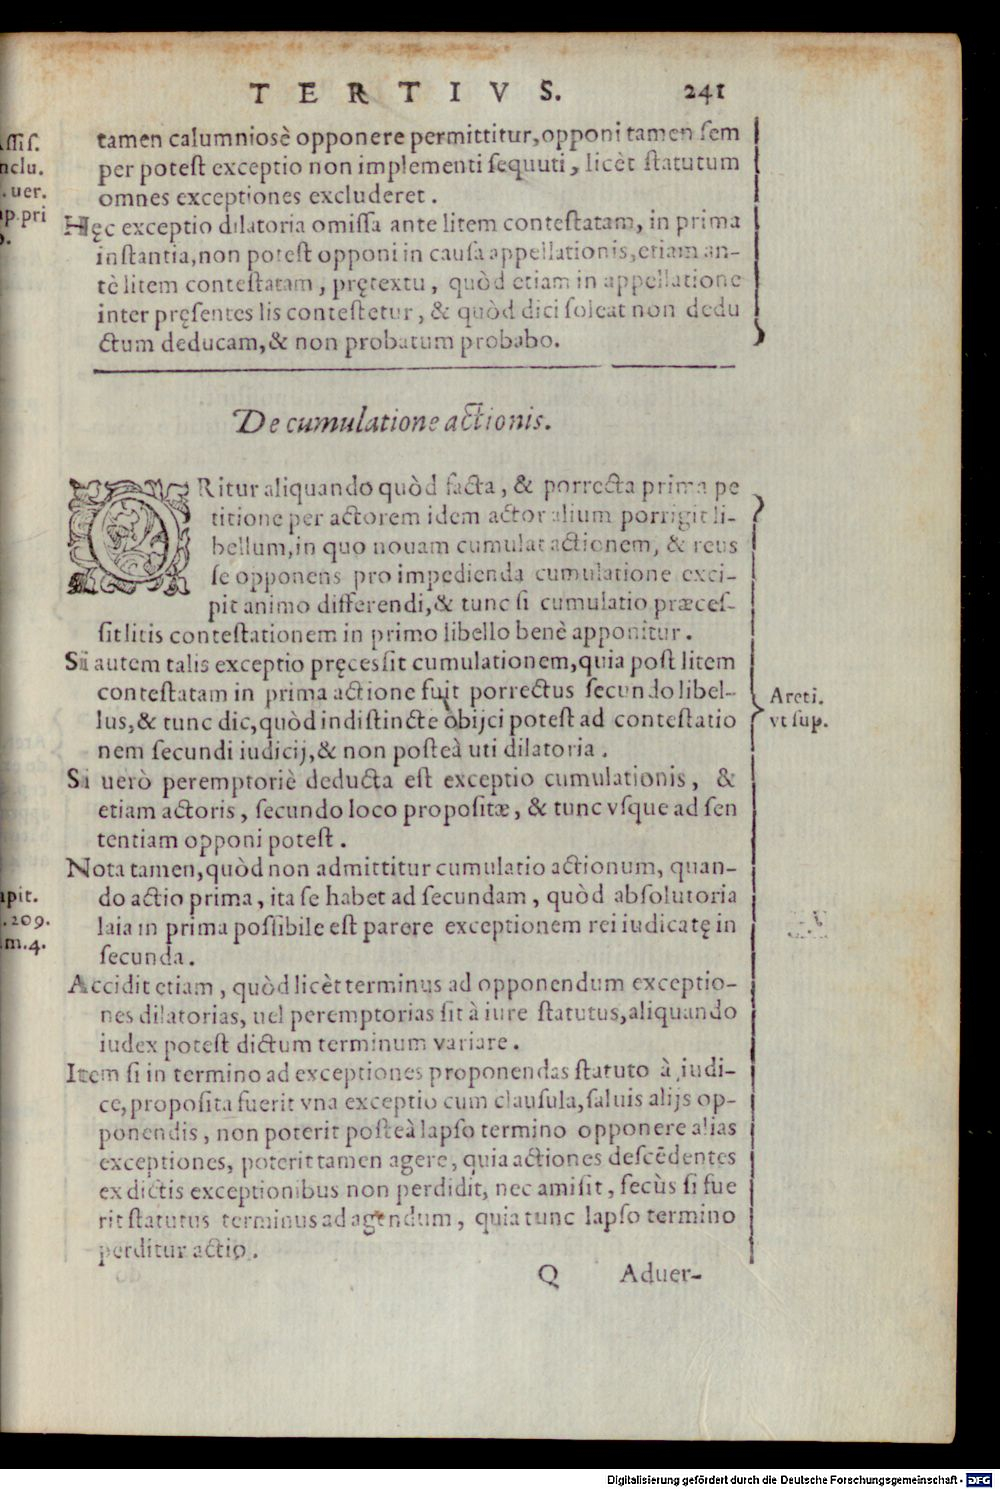 TERTIVS. 241
tamen calumniosè opponere permittitur,opponi tamen sem
per potest exceptio non implementi sequuti, licèt statutum
omnes exceptiones excluderet.
Hęc exceptio dilatoria omissa ante litem contestatam, in prima
instantia,non potest opponi in causa appellationis,etiam an-
tè litem contestatam, prętextu, quòd etiam in appellatione
inter pręsentes lis contestetur, & quòd dici soleat non dedu
ctum deducam,& non probatum probabo.
De cumulatione actionis.
ORitur aliquando quòd facta, & porrecta prima pe
titione per actorem idem actor alium porrigit li-
bellum,in quo nouam cumulat actionem, & reus
se opponens pro impedienda cumulatione exci-
pit animo differendi,& tunc si cumulatio præces-
sit litis contestationem in primo libello benè apponitur.
Si autem talis exceptio pręcessit cumulationem,quia post litem
contestatam in prima actione fuit porrectus secundo libel-
lus,& tunc dic,quòd indistincte obijci potest ad contestatio
nem secundi iudicij,& non posteà uti dilatoria.
Areti.
vt sup.
Si uerò peremptoriè deducta est exceptio cumulationis, &
etiam actoris, secundo loco propositæ, & tunc vsque ad sen
tentiam opponi potest.
Nota tamen,quòd non admittitur cumulatio actionum, quan-
do actio prima, ita se habet ad secundam, quòd absolutoria
laia in prima possibile est parere exceptionem rei iudicatę in
secunda.
Accidit etiam, quòd licèt terminus ad opponendum exceptio-
nes dilatorias, uel peremptorias sit à iure statutus,aliquando
iudex potest dictum terminum variare.
Item si in termino ad exceptiones proponendas statuto à iudi-
ce,proposita fuerit vna exceptio cum clausula,saluis alijs op-
ponendis, non poterit posteà lapso termino opponere alias
exceptiones, poterit tamen agere, quia actiones descēdentes
ex dictis exceptionibus non perdidit, nec amisit, secùs si fue
rit statutus terminus ad agendum, quia tunc lapso termino
perditur actio.
Q Aduer-
ssis.
nclu.
. uer.
p.pri
apit.
.209.
m.4.
Digitalisierung gefördert durch die Deutsche Forschungsgemeinschaft - DFG